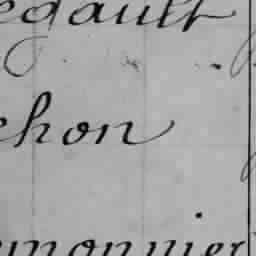 egault
ehon
umonnier